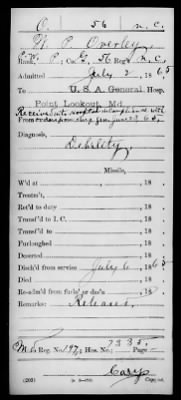 O. 56 N.C.
N. P. Overley
Rank, P; Co. E, 56 Reg't N.C.
Admitted July 2, 1865
To U. S. A. General Hosp.
Point Lookout, Md.
from June 65.
Diagnosis,
Debility.
Missile,
W'd at , 18
Treatm't,
Ret'd to duty 18
Transf'd to I. C. 18
Transf'd to 18
Furloughed 18
Deserted 18
Disch'd from service July 6 1865
Died 18
Re-adm'd from furlo' or des'n 18
Remarks: Released.
M.S. Reg. No. Hos. No. 7335 Page
(203) Cary Copyist.